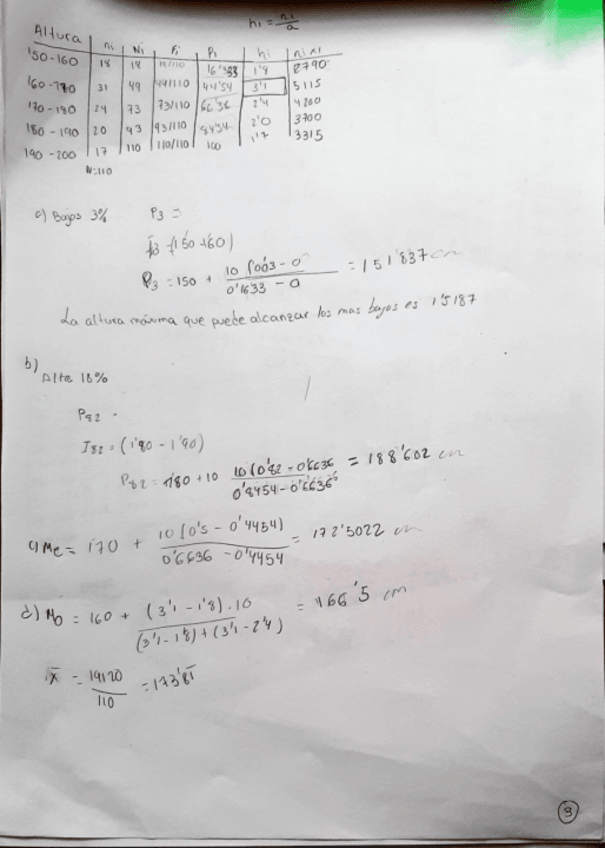 hi = ni/a
Altura ni Ni Fi Pi hi ni xi
150-160 18 18 18/110 16'33 1'8 2790
160-170 31 49 49/110 44'54 3'1 5115
170-180 24 73 73/110 66'36 2'4 4200
180-190 20 93 93/110 84'54 2'0 3700
190-200 17 110 110/110 100 1'7 3315
N=110
a) Bajos 3% P3 =
(150-160)
P3 = 150 + 10 (0'03 - 0) / 0'1633 - 0 = 151'837 cm
La altura máxima que puede alcanzar los mas bajos es 1'5187
b)
Altos 18%
P82
I82 = (1'80 - 1'90)
P82 = 180 + 10 10 (0'82 - 0'6636 / 0'8454 - 0'6636 = 188'602 cm
c) Me = 170 + 10 (0'5 - 0'4454) / 0'6636 - 0'4454 = 172'5022 cm
d) Mo = 160 + (3'1 - 1'8) . 10 / (3'1 - 1'8) + (3'1 - 2'4) = 166'5 cm
x̄ = 19120 / 110 = 173'81
3